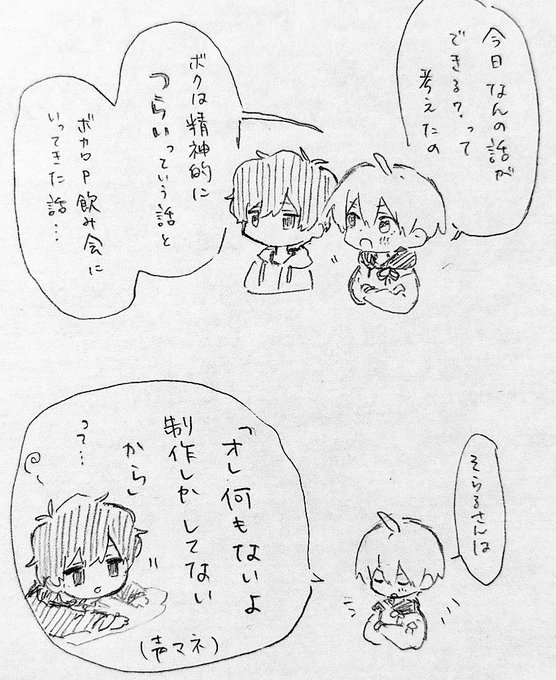 今日なんの話が
できる?って
考えたの
ボクは精神的に
つらいっていう話と
ボカロP飲み会に
いってきた話…
そらるさんは
「オレ何もないよ
制作しかしてない
から」
って…
(声マネ)